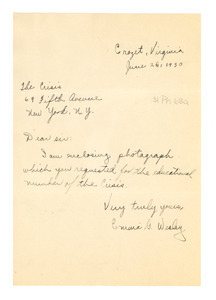 Crozet, Virginia
June 26, 1930
The Crisis
69 Fifth Avenue
New York, N.Y.
Dear sir:
I am enclosing photograph
which you requested for the educational
number of the Crisis.
Very truly yours
Emma G. Wesley